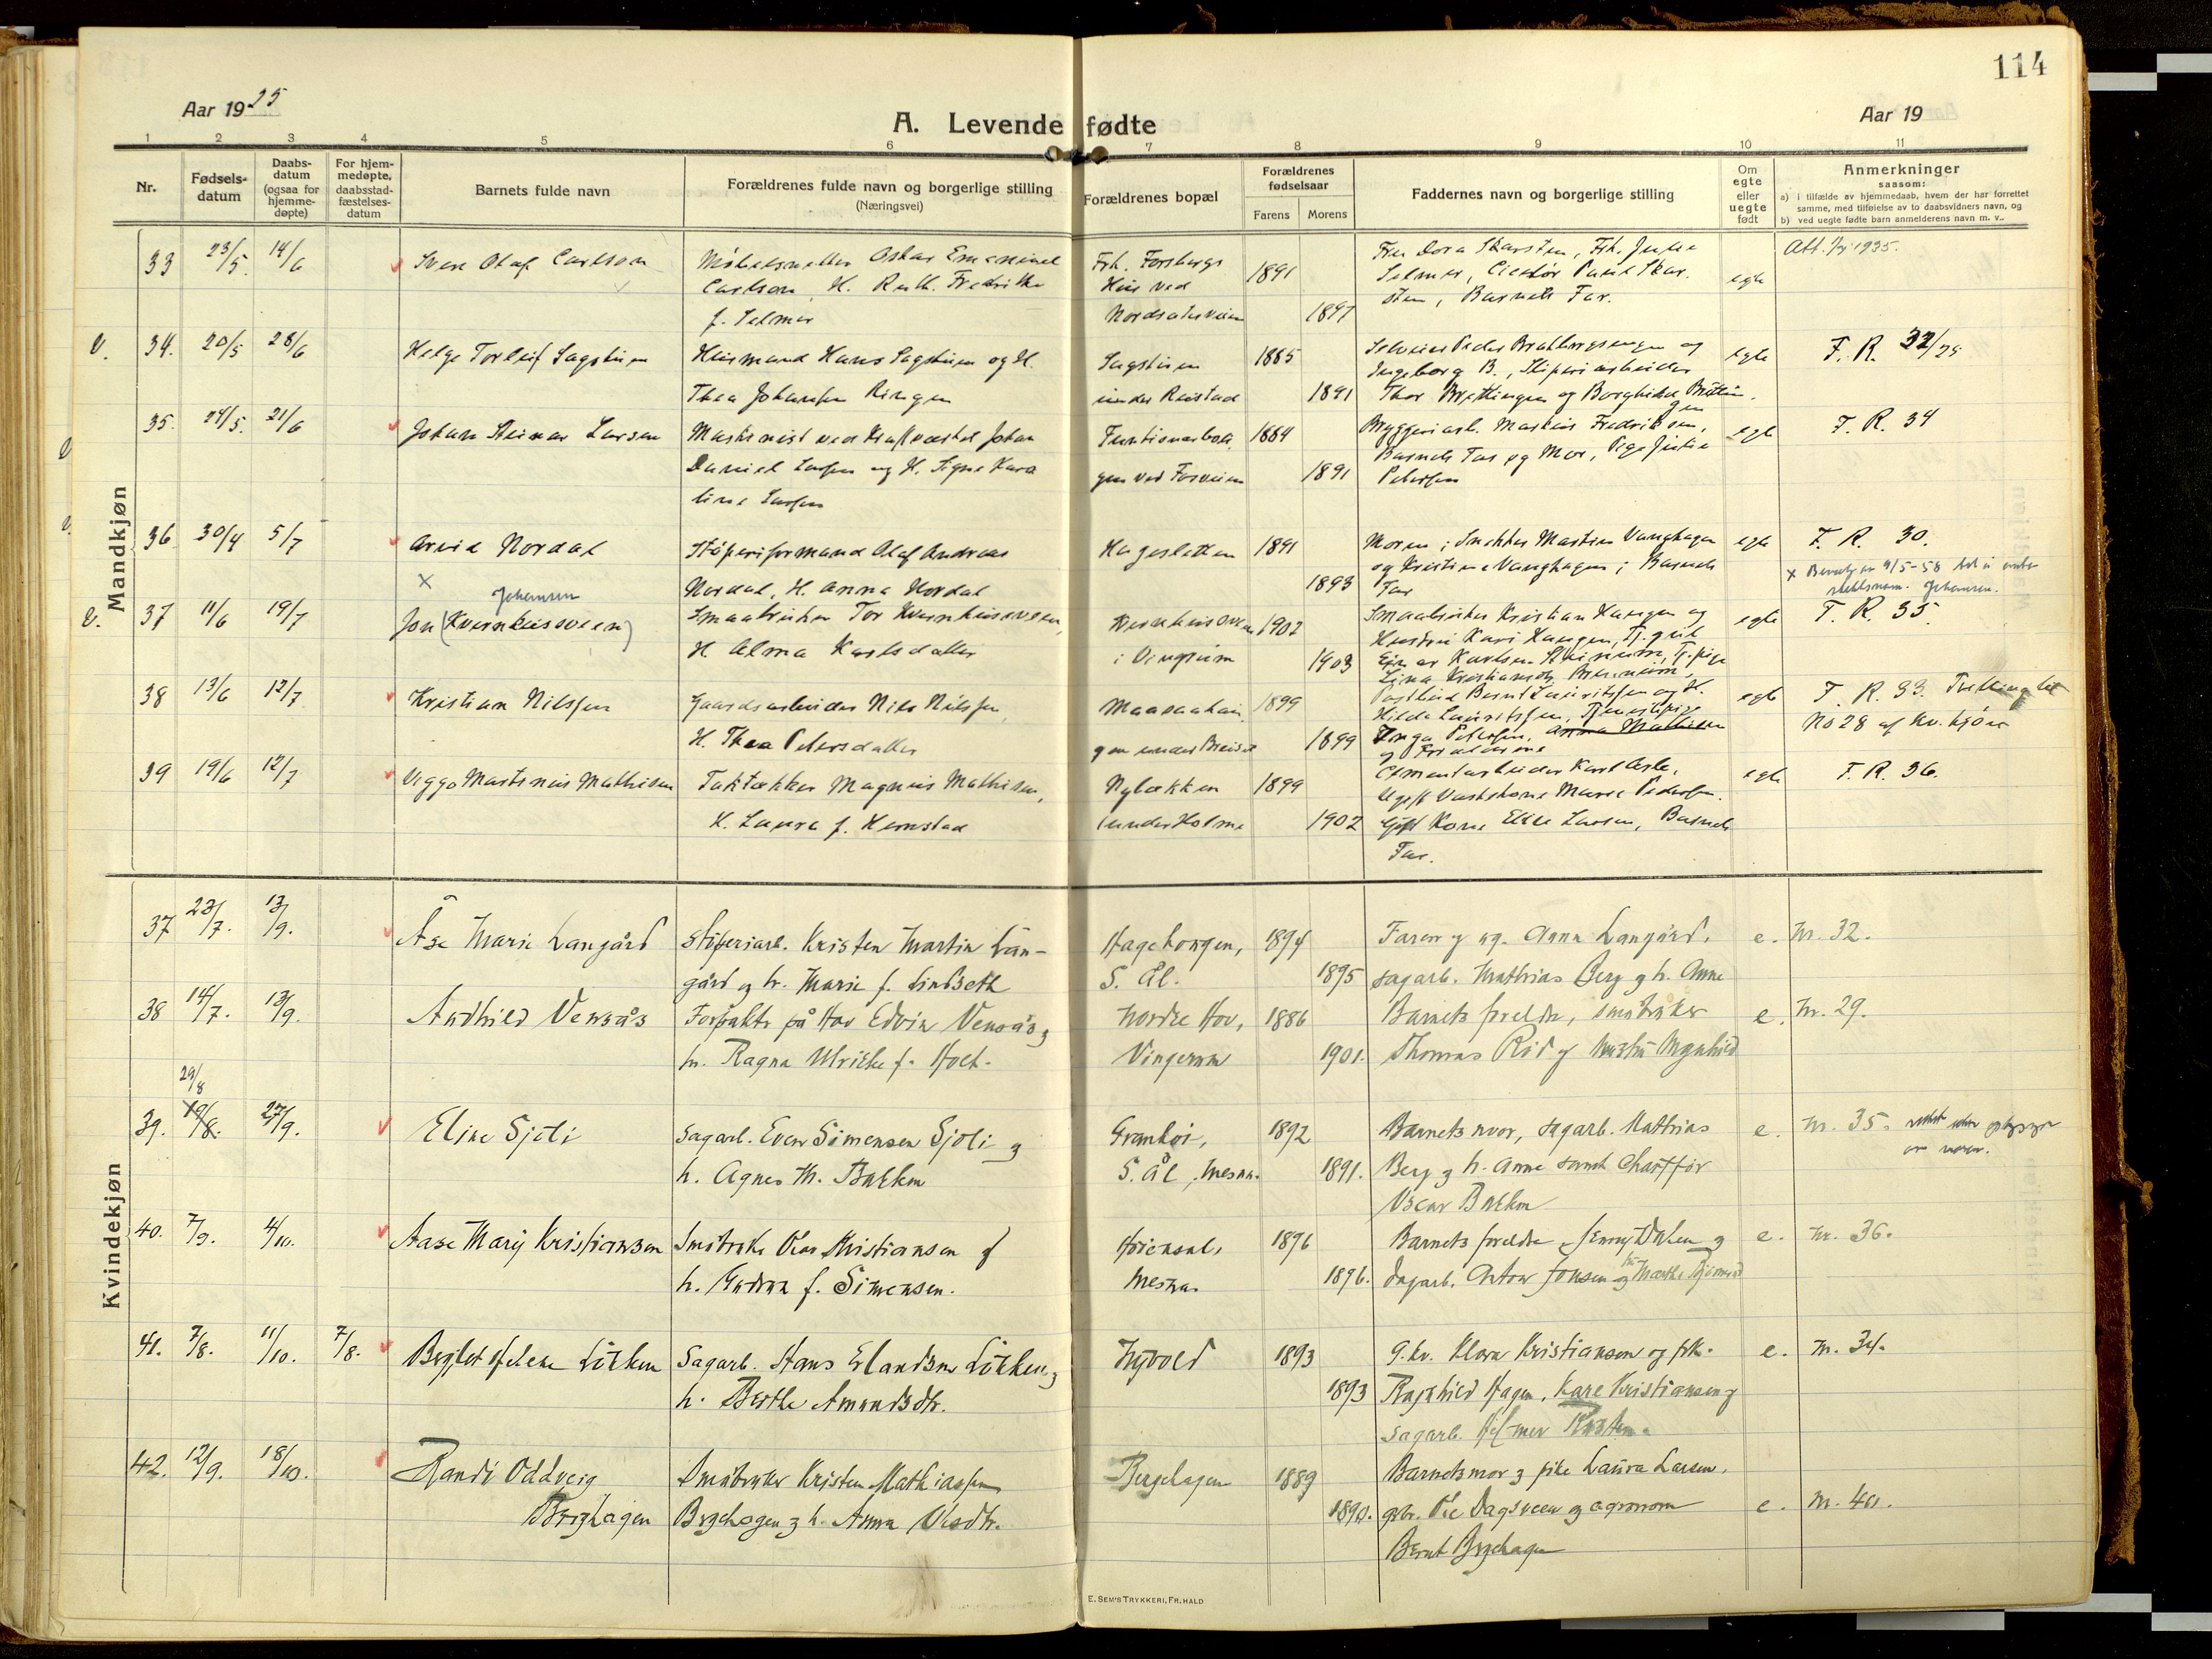 114
Aar 1925
A. Levende fødte
Aar 19
1 2 3 4 5 6 7 8 9 10 11
Nr.
Fødsels-
datum
Daabs-
datum
(ogsaa for
hjemme-
døpte)
For hjem-
medøpte,
daabsstad-
fæstelses-
datum
Barnets fulde navn
Forældrenes fulde navn og borgerlige stilling
(Næringsvei)
Forældrenes bopæl
Forældrenes
fødselsaar
Farens Morens
Faddernes navn og borgerlige stilling
Om
egte
eller
uegte
født
Anmerkninger
sassom:
a) i tilfælde av hjemmedaab, hvem der har forrettet
samme, med tilføielse av to daabsvidners navn, og
b) ved uegte fødte barn anmelderens navn m. v..
Mandkjøn
33 23/5. 14/6 Sven Olaf Carlson
Oskar Emanuel
Carlson, H. Ruth Fredrikke
f. Selmer
Frk. Forsbergs
Hus ved
Nordsæterveien
1891
1897
Fru Dora Skarsten, Frk.
Selmer, Paul Skar-
sten, Barnets Far.
egte
Att. 1935.
V. 34. 20/5 28/6 Helge Torleif Sagstuen
Husmand Hans Sagstuen og H.
Thea Johansen Ringen
Sagstuen
under Reistad
1885
1891
Peder og
Ingeborg B., Sliperiarbeider
Thor og Borghild
egte
F. R. 32/25
35. 24/5. 21/6 Johan Steinar Larsen
Maskinist ved Kraftværket Johan
Daniel Larsen og H. Signe Karo
line Larsen
gen ved Fosveien
1884
1891
Bryggeriarb. Markus Fredriksen,
Barnets Far og Mor, Pige
Petersen
egte
F. R. 34
36 30/4 5/7 Arvid Nordal
X
Støperiformand Olaf Andreas
Nordal, H. Anna Nordal
Hagesletten
1891
1893
Moren; Snekker Martin Vanghagen
og Kristine Vanghagen; Barnets
Far
egte
F. R. 30.
X 9/5-58
Johansen.
V. 37 11/6 19/7 Jon (Kvernhusveen)
Johansen
Smaabruker Tor Kvernhusveen,
H Alma Karlsdatter
Kvernhusveen
i Vingrum
1902
1903
Smaabruker Kristian Haugen og
Hustru Kari Haugen, Tj. gut
Einar Karlsen Tj. pige
Lina
egte
F. R. 35.
38 13/6 12/7 Kristian Nilssen
Gaardsarbeider Nils Nilssen,
H. Thea Petersdatter
gen under
1899
1899
Bernt Lauritssen og H.
Hilda Lauritssen, Tjenestepige
Inga Petersen, Anna Mathisen
og Forældrene
egte
F. R. 33. Tvilling til
No 28 af Kv. kjøn
39 19/6 12/7 Viggo Martinius Mathisen
Taktækker Magnus Mathisen,
H. Laura f. Hemstad
Nyløkken
under Holme
1899
1902
Cementarbeider Karl
Ugift Vaskekone Marie Pedersen.
Gift Kone Elise Larsen, Barnets
Far.
egte
F. R. 36.
Kvindekjøn
37 23/7. 13/9. Åse Marie Langård
Sliperiarb. Kristen Martin Lan-
gård og h. Marie f. Lindseth
Hagehaugen,
S. Ål.
1894
1895
Faren og ug. Anna Langård,
sagarb. Mathias Berg og h. Anne
e. Nr. 32.
38 14/7. 13/9. Andhild Vensås
Forpakter på Hov Edvin Vensås og
h. Ragna Ulrikke f. Holt.
Nordre Hov,
Vingrom
1886
1901.
Barnets foreldre, småbruker
Thomas og hustru
e. Nr. 29.
29/8
39. 19/8. 27/9. Eline Sjøli
Sagarb. Even Simensen Sjøli og
h. Agnes M. Bakken
Granhøi,
S. Ål, Mesna.
1892
1891.
Barnets mor, sagarb. Mathias
Berg og h. Anne samt Chaffør
Oscar Bakken
e. Nr. 35.
av moren.
40. 7/9. 4/10. Aase Mary Kristiansen
Småbruker Olav Kristiansen og
h. Gudrun f. Simensen.
Mesna.
1896
1896.
Barnets foreldre, Jenny Dalen og
Dagarb. Anton Jonsen og fru Marthe
e. Nr. 36.
41. 7/8. 11/10. 7/8. Bergljot Helene Løkken
Sagarb. Hans Erlandsen Løkken og
h. Berthe Amundsdtr.
Nybold
1893
1893
G. kv. Klara Kristiansen og frk.
Ragnhild Hagen, Kare Kristiansen og
sagarb. Hilmer
e. Nr. 34.
42. 12/9. 18/10. Randi Oddveig
Berghagen
Småbruker Kristen Mathiassen
Berghagen og h. Anna Olsdtr.
Berghagen
1889
1890.
Barnets mor og pike Laura Larsen,
gbr. Ole Dagsveen og agronom
Bernt Berghagen
e. Nr. 40.
E. SEM'S TRYKKERI, FR.HALD